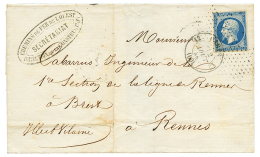 CHEMINS DE FER DE L'OUEST
SECRÉTARIAT
Monsieur
Cabarrus, Ingénieur de la
1re Section de la ligne de Rennes
à Brest
Ille et Vilaine
à Rennes